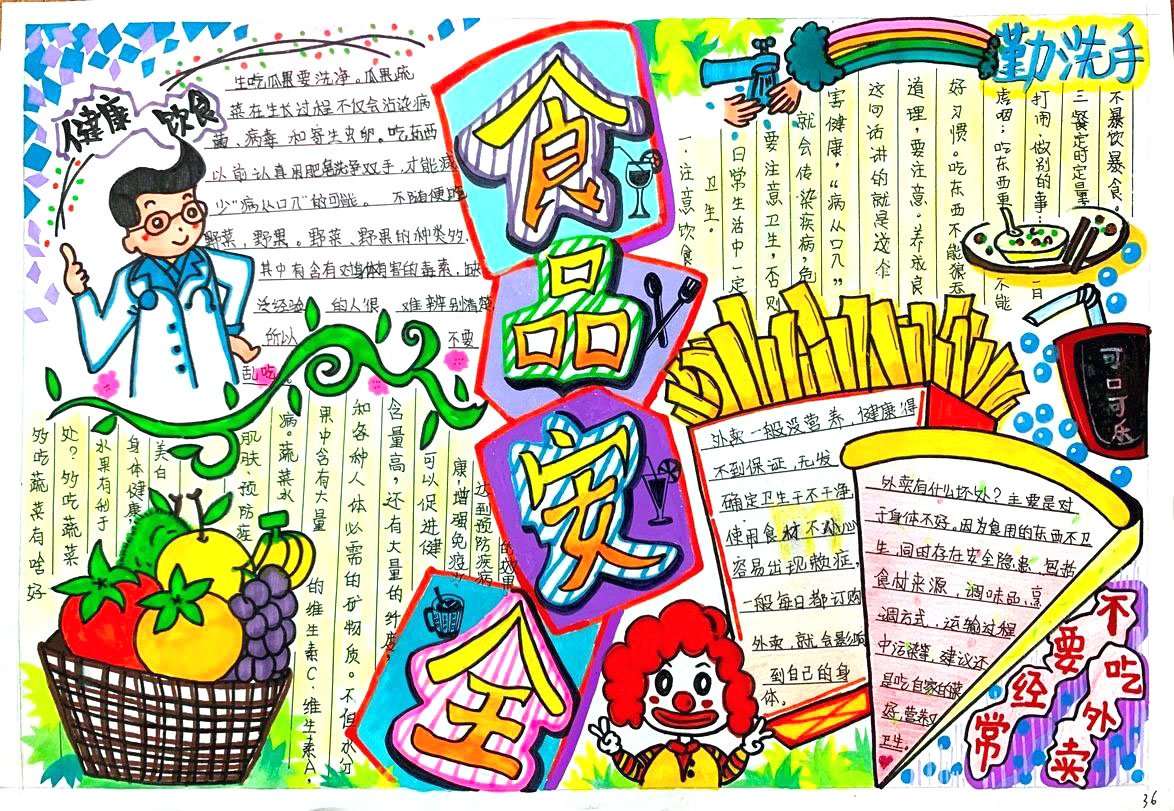 健康
饮食
生吃瓜果要洗净。瓜果蔬
菜在生长过程不仅会沾染病
菌、病毒和寄生虫卵。吃东西
以前认真用肥皂洗净双手,才能减
少“病从口入”的可能。不随便吃
野菜,野果。野菜、野果的种类多.
其中有含有对身体有害的毒素,缺
乏经验 的人很 难辨别清楚
所以 不要
乱吃。
食品安全
勤洗手
一、注意饮食
卫生。
日常生活中一定
要注意卫生,否则
就会传染疾病,危
害健康,“病从口入”
这句话讲的就是这个
道理,要注意。养成良
好习惯。吃东西不能狼吞
虎咽;吃东西更不能
打闹,做别的事:一日
三餐定时定量
不暴饮暴食。
可口可乐
多吃蔬菜有啥好
处?多吃蔬菜
水果有利于
身体健康,
美白
肌肤,预防症
病。蔬菜水
果中含有大量
的维生素C,维生素A.
和各种人体必需的矿物质。不但水分
含量高,还有大量的纤度,
可以促进健
康,增强免疫
达到预防疾病
的效果
外卖一般没营养,健康得
不到保证,无发
确定卫生干不干净,
使用食材不小心
容易出现敷症,
一般每日都订购
外卖,就会影响
到自己的身
体,
外卖有什么坏处?主要是对
于身体不好。因为食用的东西不卫
生,同由存在安全隐患,包括
食材来源,调味品,烹
调方式,运输过程
中污染等,建议还
是吃自家的菜
好,营养又
卫生。
不要经常
吃外卖
36